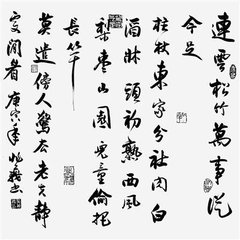 連雲松竹萬事從
今足
拄杖東家分社肉白
酒牀頭初熟西風
梨棗山園兒童偷把
長竿
莫遣傍人驚去老夫靜
處閒看